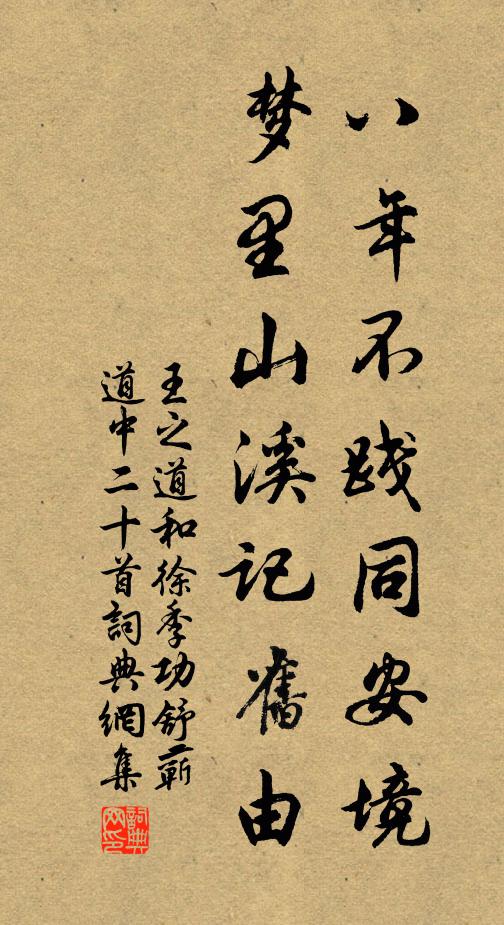 八年不践同安境
梦里山溪记旧由
王之道和徐季功舒蕲
道中二十首詞典網集
詞典网印